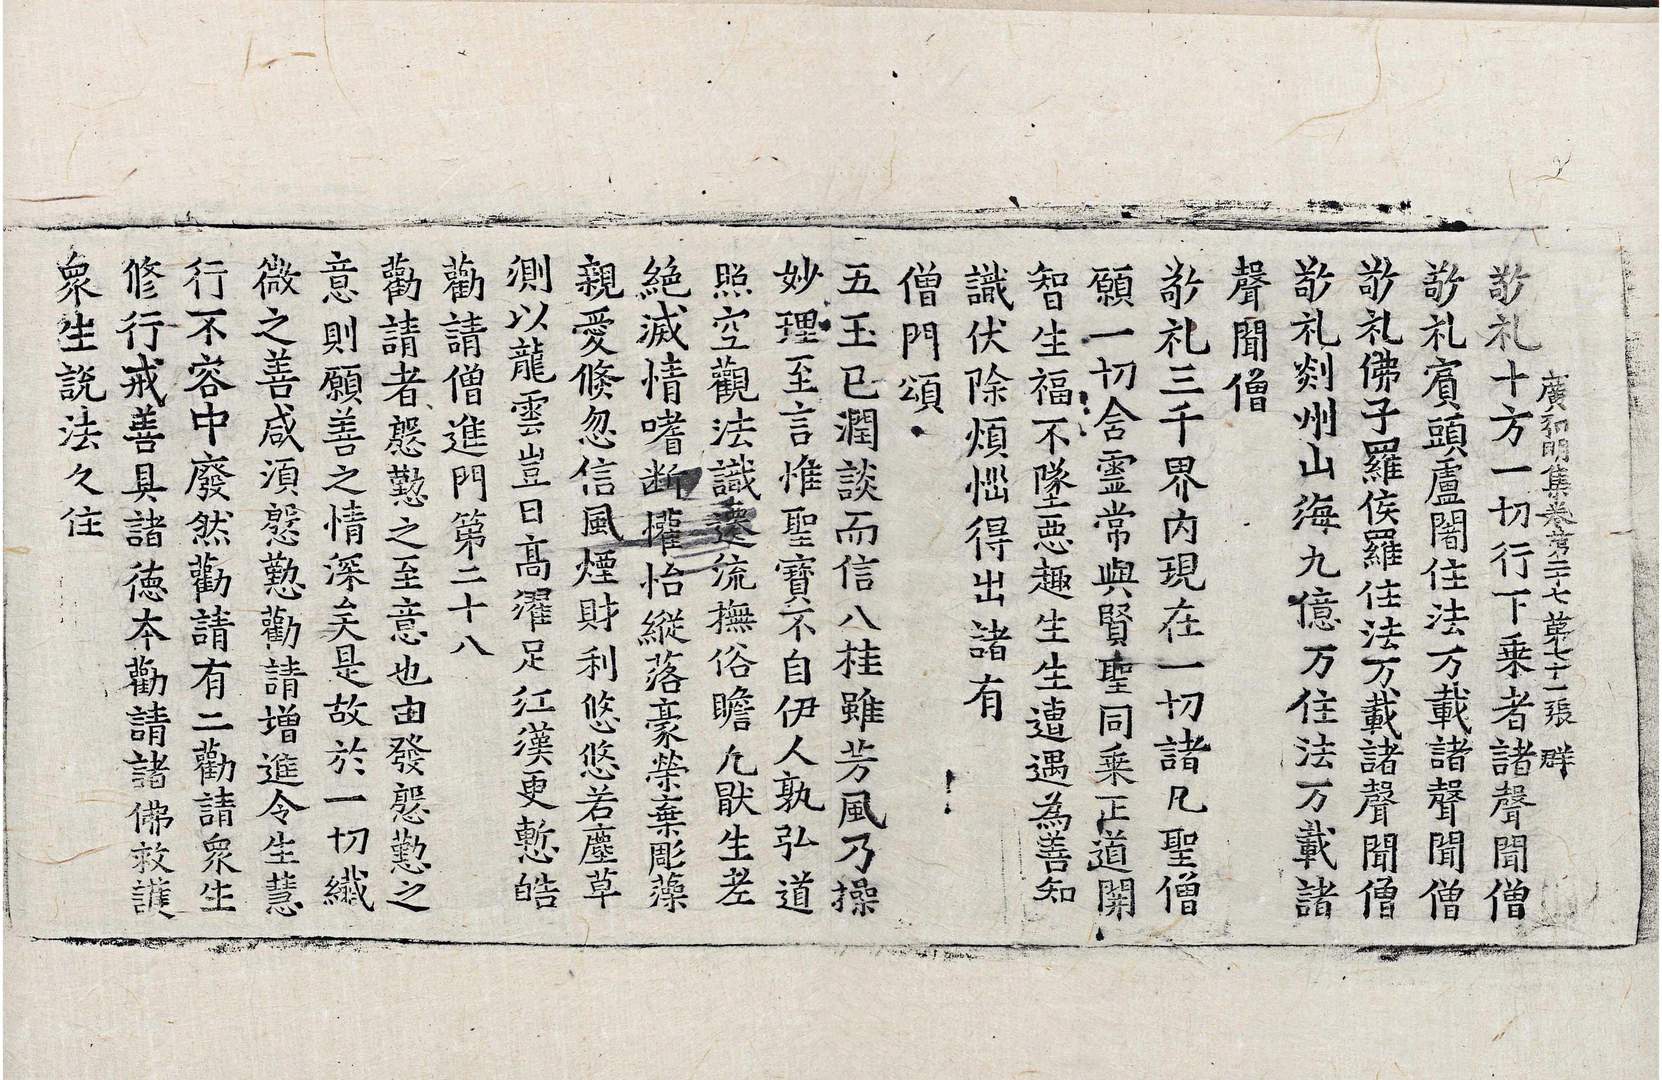 廣弘明集卷第二十七 第七十一張 群
敬礼十方一切行下乗者諸聲聞僧
敬礼賓頭盧闍住法万載諸聲聞僧
敬礼佛子羅侯羅住法万載諸聲聞僧
敬礼剡州山海九億万住法万載諸
聲聞僧
敬礼三千界内現在一切諸凡聖僧
願一切含霊常與賢聖同乗正道開
智生福不墜惡趣生生遭遇為善知
識伏除煩惱得出諸有
僧門頌
五玉已潤談而信八桂雖芳風乃操
妙理至言惟聖寶不自伊人孰弘道
照空觀法識遷流撫俗瞻凡猒生老
絶滅情嗜断攉怡縱落豪榮棄彫藻
親愛倏忽信風煙財利悠悠若塵草
測以龍雲豈曰髙濯足江漢更慙皓
勸請僧進門第二十八
勸請者慇懃之至意也由發慇懃之
意則願善之情深矣是故於一切纖
微之善咸須慇懃勸請増進令生慧
行不容中廢然勸請有二勸請衆生
修行戒善具諸徳本勸請諸佛救護
衆生説法久住